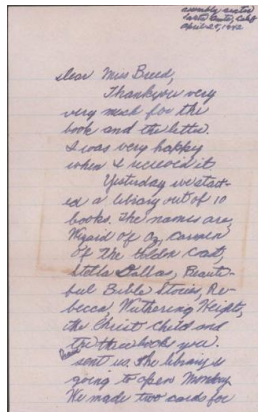 Assembly Center
Santa Anita, Calif
April 25, 1942
Dear Miss Breed,
Thank you very
very much for the
book and the letter.
I was very happy
when I recieved it
Yesterday we start-
ed a library out of 10
books. The names are,
Wizard of Oz, Carmen
of the Golden Coast,
Stella Dallas, Beauti-
ful Bible Stories, Re-
becca, Wuthering Heights,
the Christ Child and
the three books you
have
sent us. The library is
going to open Monday.
We made two cards for